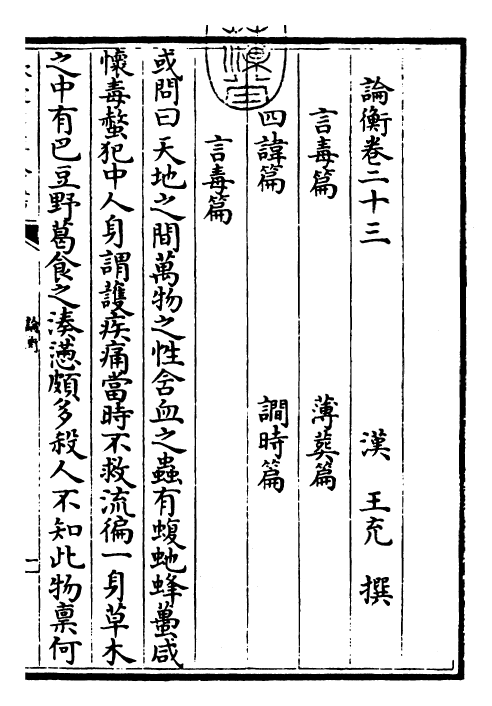 論衡卷二十三
漢 王充 撰
言毒篇 薄葬篇
四諱篇 讕時篇
言毒篇
或問曰天地之間萬物之性含血之蟲有蝮虵蜂蠆咸
懷毒螫犯中人身謂䕶疾痛當時不救流徧一身草木
之中有巴豆野葛食之湊懣頗多殺人不知此物稟何
論衡
一